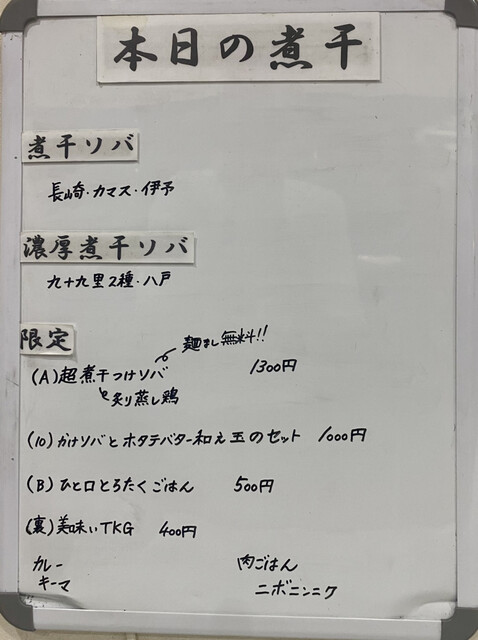 本日の煮干
煮干ソバ
長崎・カマス・伊予
濃厚煮干ソバ
九十九里2種・八戸
限定
麺まし無料!!
(A)超煮干つけソバ 1300円
と炙り蒸し鶏
(10)かけソバとホタテバター和え玉のセット 1000円
(B)ひと口とろたくごはん 500円
(裏)美味いTKG 400円
カレー 肉ごはん
キーマ ニボニンニク